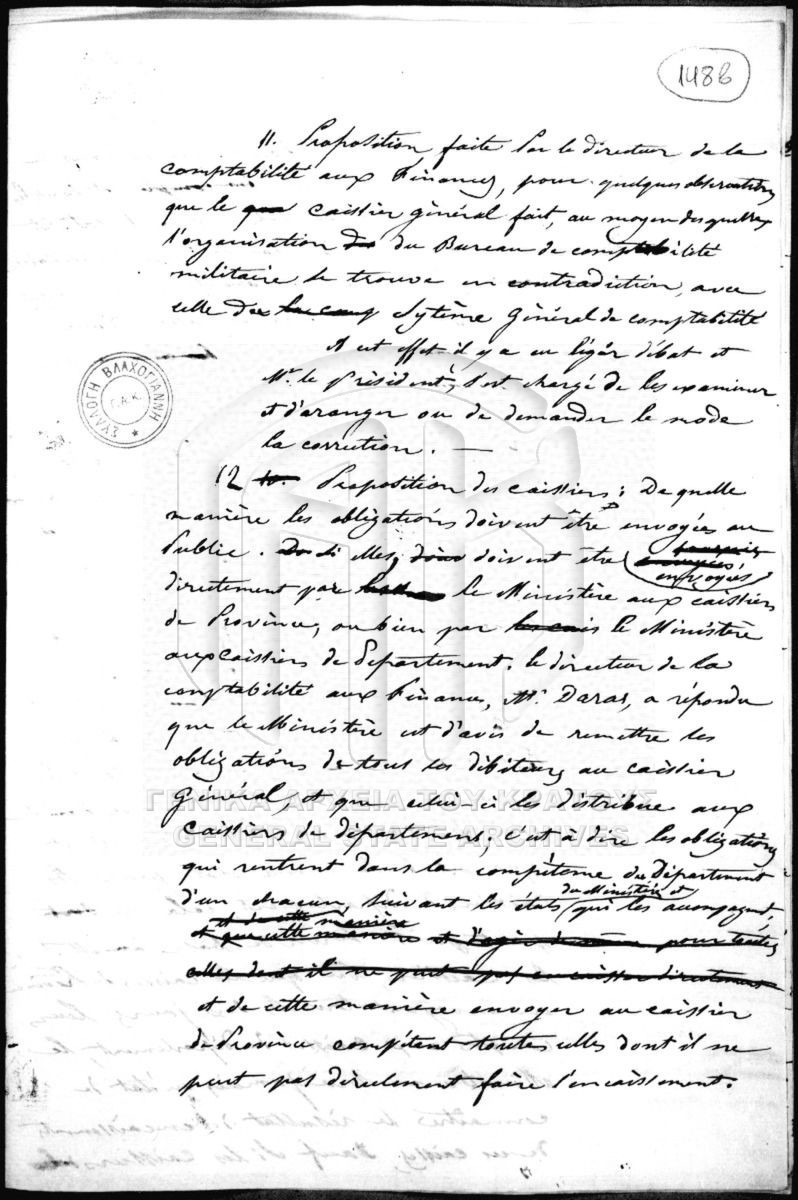 148b
11. Proposition faite par le directeur de la
comptabilité aux Finances, pour quelques observations
que le caissier général fait, au moyen des quelles
l'organisation du Bureau de comptabilité
militaire se trouve en contradiction avec
celle des Sytème général de comptabilité
A cet effet il y a eu légér débat et
Mr. le Président, s'est chargé de les examiner
et d'aranger ou de demander le mode
la corrcution. —
12 10. Proposition des caissiers: De quelle
manière les obligations doivent être envoyées au
Public. Si elles doivent être envoyées
directement par le Ministère aux caissiers
de Province, ou bien par le Ministère
aux caissiers de Département. Le directeur de la
comptabilité aux Finances, Mr. Daras, a répondu
que le Ministère est d'avis de remettre les
obligations de tous les débiteurs au caissier
Général, et que celui-ci les distribue aux
caissiers de département, c'est à dire les obligations
qui rentrent dans la compétence du Département
d'un chacun, suivant les états du Ministère et qui les acompagnent,
et de cette manière
et que cette manière et d'agir de même pour toutes
celles dont il ne peut pas encaisser directement
et de cette manière envoyer au caissier
de Province compétent toutes celles dont il ne
peut pas directement faire l'encaissement.
ΣΥΛΛΟΓΗ ΒΛΑΧΟΓΙΑΝΝΗ
Γ.Α.Κ.
ΓΕΝΙΚΑ ΑΡΧΕΙΑ ΤΟΥ ΚΡΑΤΟΥΣ
GENERAL STATE ARCHIVES